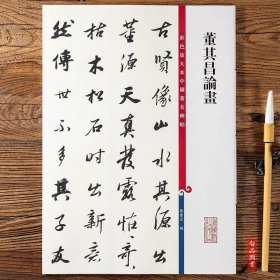 董其昌論畫
彩色放大本中國著名碑帖
孫寶文 編
古賢像山水其源出
董源天真發露怪奇
枯木松石時出新意
然傳世不多其子友